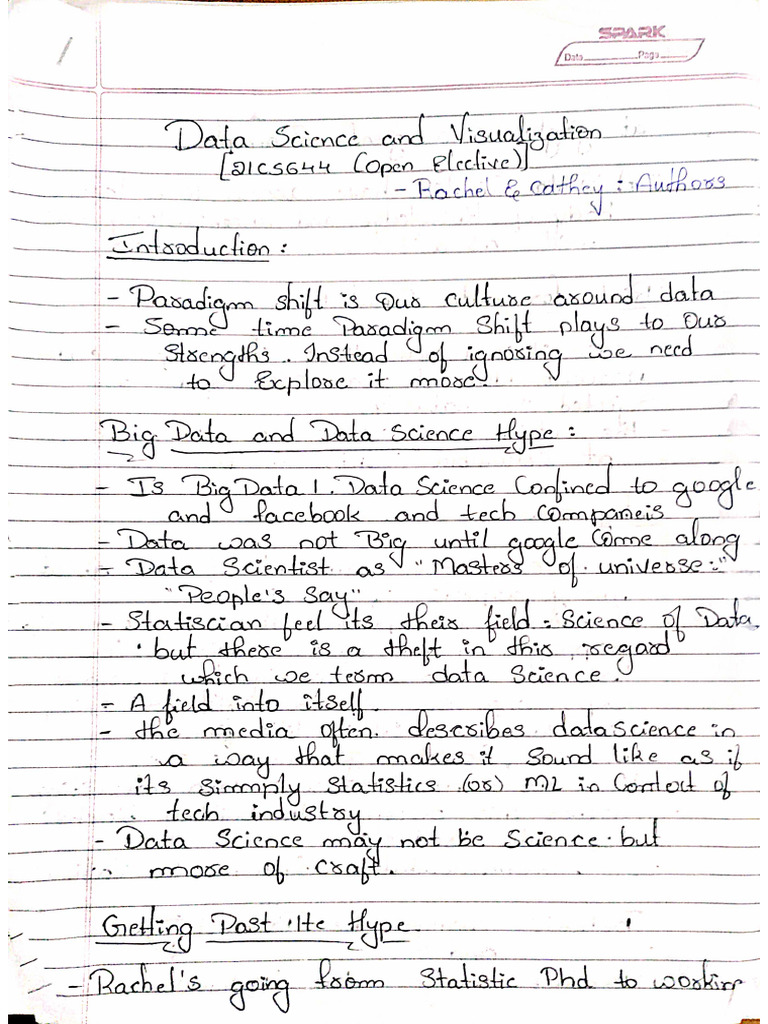 1
SPARK
Date Page
Data Science and Visualization
[21CS644 (Open Elective)]
- Rachel & Cathey : Authors
Introduction :
- Paradigm shift is Our culture around data
- Some time Paradigm Shift plays to Our
Strengths. Instead of ignoring we need
to Explore it more.
Big Data and Data Science Hype :
- Is Big Data 1. Data Science Confined to google
and facebook and tech Companeis
- Data was not Big until google Come along
- Data Scientist as "Masters of universe:"
"People's Say"
- Statiscian feel its their field : Science of Data.
but there is a theft in this regard
which we term data Science.
- A field into itself.
- the media often describes datascience in
a way that makes it Sound like as if
its Simmply Statistics (or) ML in Context of
tech industry
- Data Science may not be Science but
more of craft.
Getting Past the Hype
- Rachel's going from Statistic Phd to working